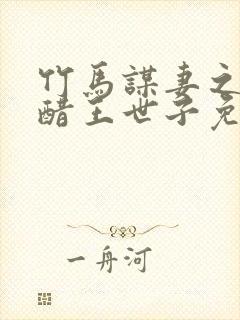 竹馬謀妻之
醋王世子免
一舟河